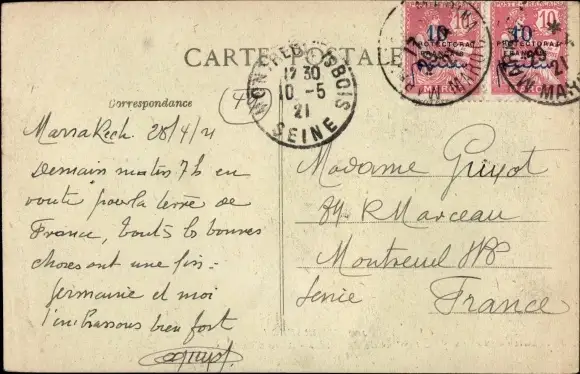 CARTE POSTALE
Correspondance
MONTREUIL-S-BOIS
12 30
10 -5
21
SEINE
POSTE FRANÇAISE
10
PROTECTORAT
MAROC
10
PROTECTORAT
MAROC
Marrakech. 28/4/21
Demain matin 7h en
route pour la terre de
France, toutes les bonnes
choses ont une fin -
Germaine et moi
t'embrassons bien fort
Guyot
Madame Guyot
84. R Marceau
Montreuil s/B
Seine France